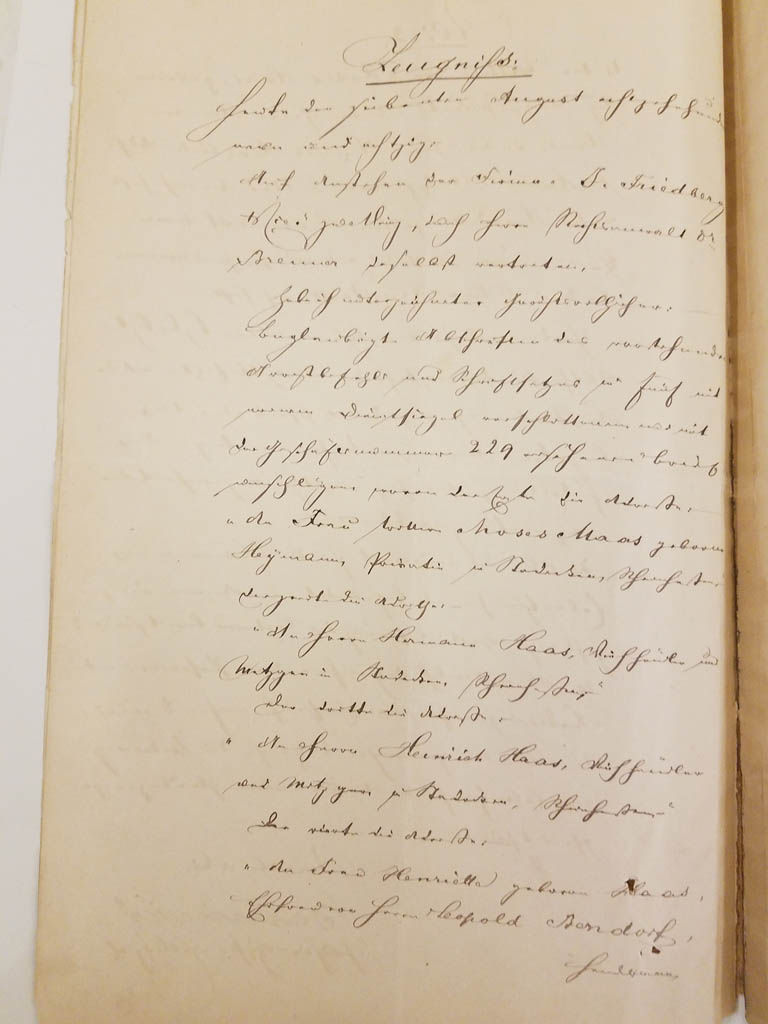 Zeugniß.
Heute den siebenten August achtzehnhundert
neun und achtzig.
Auf Anstehen der Firma J. Friedberg
durch ihren Rechtsanwalt Dr
daselbst vertreten,
habe ich unterzeichneter Gerichtsvollzieher,
beglaubigte Abschriften des vorstehenden
Arrestbefehls und Schriftsatzes in fünf mit
meinem Dienstsiegel verschlossenen und mit
der Geschäftsnummer 229 versehenen Brief
umschlägen, wovon der Erste die Adresse:
"An Frau Wittwe Moses Maas geborene
Heymann, Privatin in Stadecken, Rheinhessen,"
der zweite die Adresse:
"An Herrn Hermann Haas, Viehhändler und
Metzger in Stadecken, Rheinhessen,"
der dritte die Adresse:
"An Herrn Heinrich Haas, Viehhändler
und Metzger in Stadecken, Rheinhessen,"
der vierte die Adresse:
"An Frau Henriette geborene Haas,
Ehefrau von Herrn Leopold Bendorf,
Handelsmann